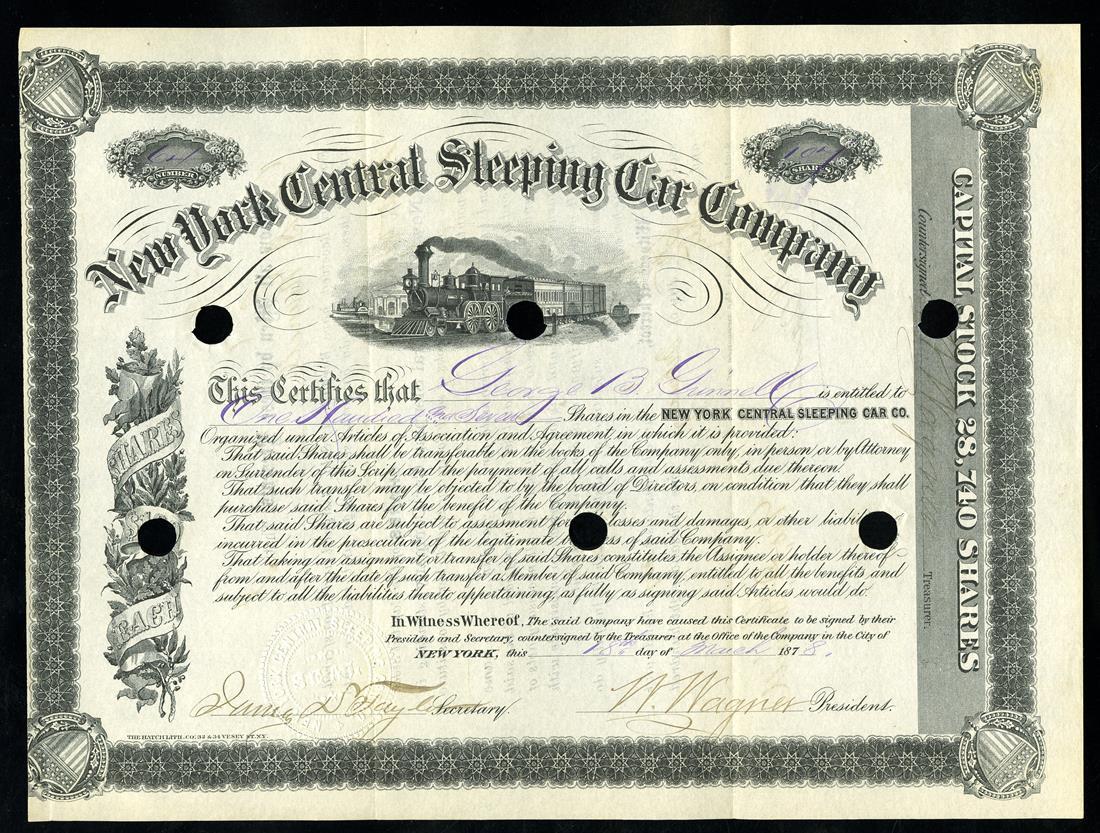 NUMBER
107
SHARES
New York Central Sleeping Car Company
This Certifies that George B. Grinnell is entitled to
One Hundred and Seven Shares in the NEW YORK CENTRAL SLEEPING CAR CO.
Organized under Articles of Association and Agreement, in which it is provided:
That said Shares shall be transferable on the books of the Company only, in person or by Attorney
on Surrender of this Scrip, and the payment of all calls and assessments due thereon.
That such transfer may be objected to by the board of Directors, on condition that they shall
purchase said Shares for the benefit of the Company.
That said Shares are subject to assessment for losses and damages, or other liabili
incurred in the prosecution of the legitimate of said Company.
That taking an assignment or transfer of said Shares, constitutes the Assignee or holder thereof
from and after the date of such transfer a Member of said Company, entitled to all the benefits, and
subject to all the liabilities thereto appertaining, as fully as signing said Articles would do.
In Witness Whereof, The said Company have caused this Certificate to be signed by their
President and Secretary, countersigned by the Treasurer at the Office of the Company in the City of
NEW YORK, this 18th day of March 1878.
Secretary.
W. Wagner President.
THE HATCH LITH. CO. 32 & 34 VESEY ST. N.Y.
SHARES
EACH
Countersigned
Treasurer.
CAPITAL STOCK 28,740 SHARES